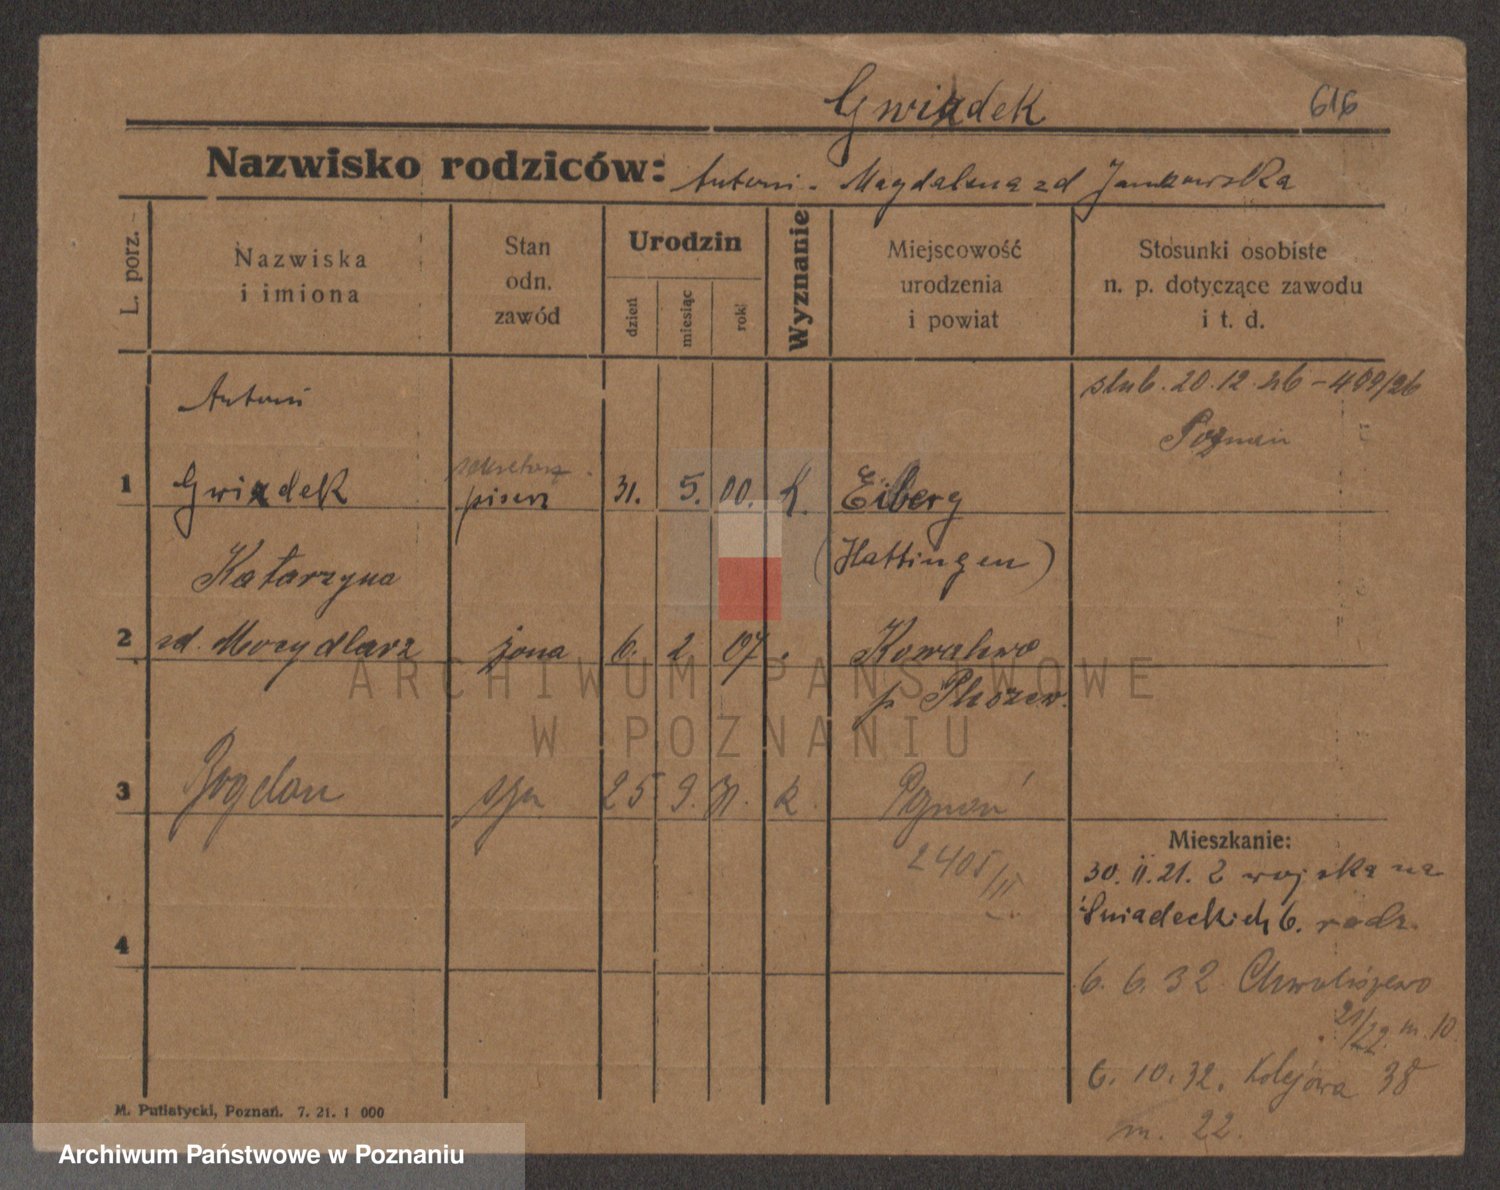 Gwizdek 616
Nazwisko rodziców: Antoni - Magdalena zd Jankowska
L. porz.
Nazwiska
i imiona
Stan
odn.
zawód
Urodzin
dzień
miesiąc
rok
Wyznanie
Miejscowość
urodzenia
i powiat
Stosunki osobiste
n. p. dotyczące zawodu
i t. d.
Antoni
ślub. 20.12.26 - 409/26
Poznań
sekretarz
1 Gwizdek pisarz 31. 5. 00. k. Eiberg
(Hattingen)
Katarzyna
2 zd. Mocydlarz żona 6. 2. 07. Kowalewo
p. Pleszew.
3 Bogdan syn 25 9. 31. k. Poznań
2405/II
Mieszkanie:
30. II. 21. z wojska na
Śniadeckich 6. rodz.
4
6. 6. 32 Chwaliszewo
21/22 m. 10
6. 10. 32. Kolejowa 38
m. 22.
M. Putiatycki, Poznań. 7. 21. 1 000
ARCHIWUM PAŃSTWOWE
W POZNANIU
Archiwum Państwowe w Poznaniu